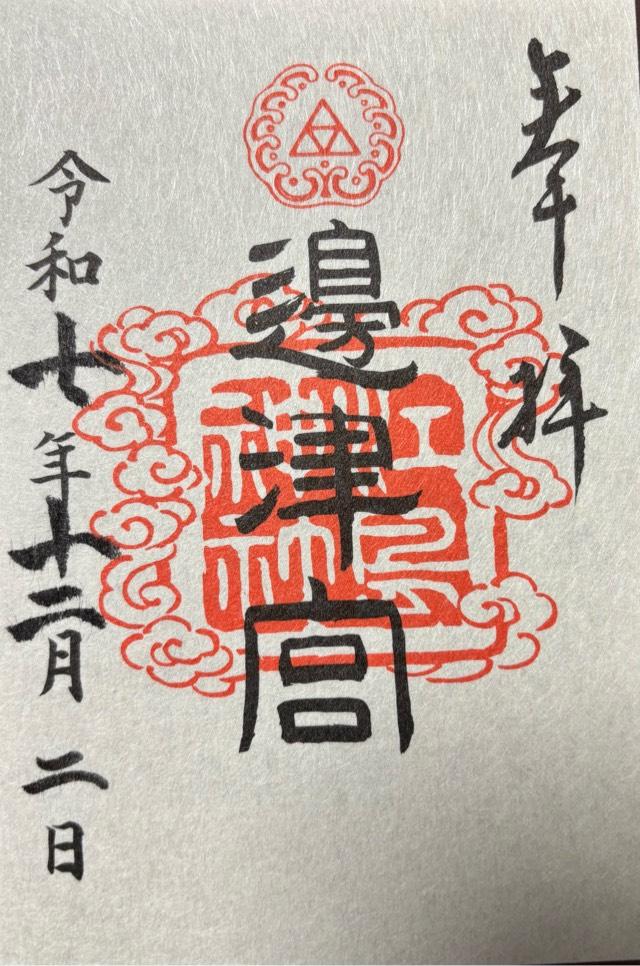 奉拝
邊津宮
令和七年十二月二日